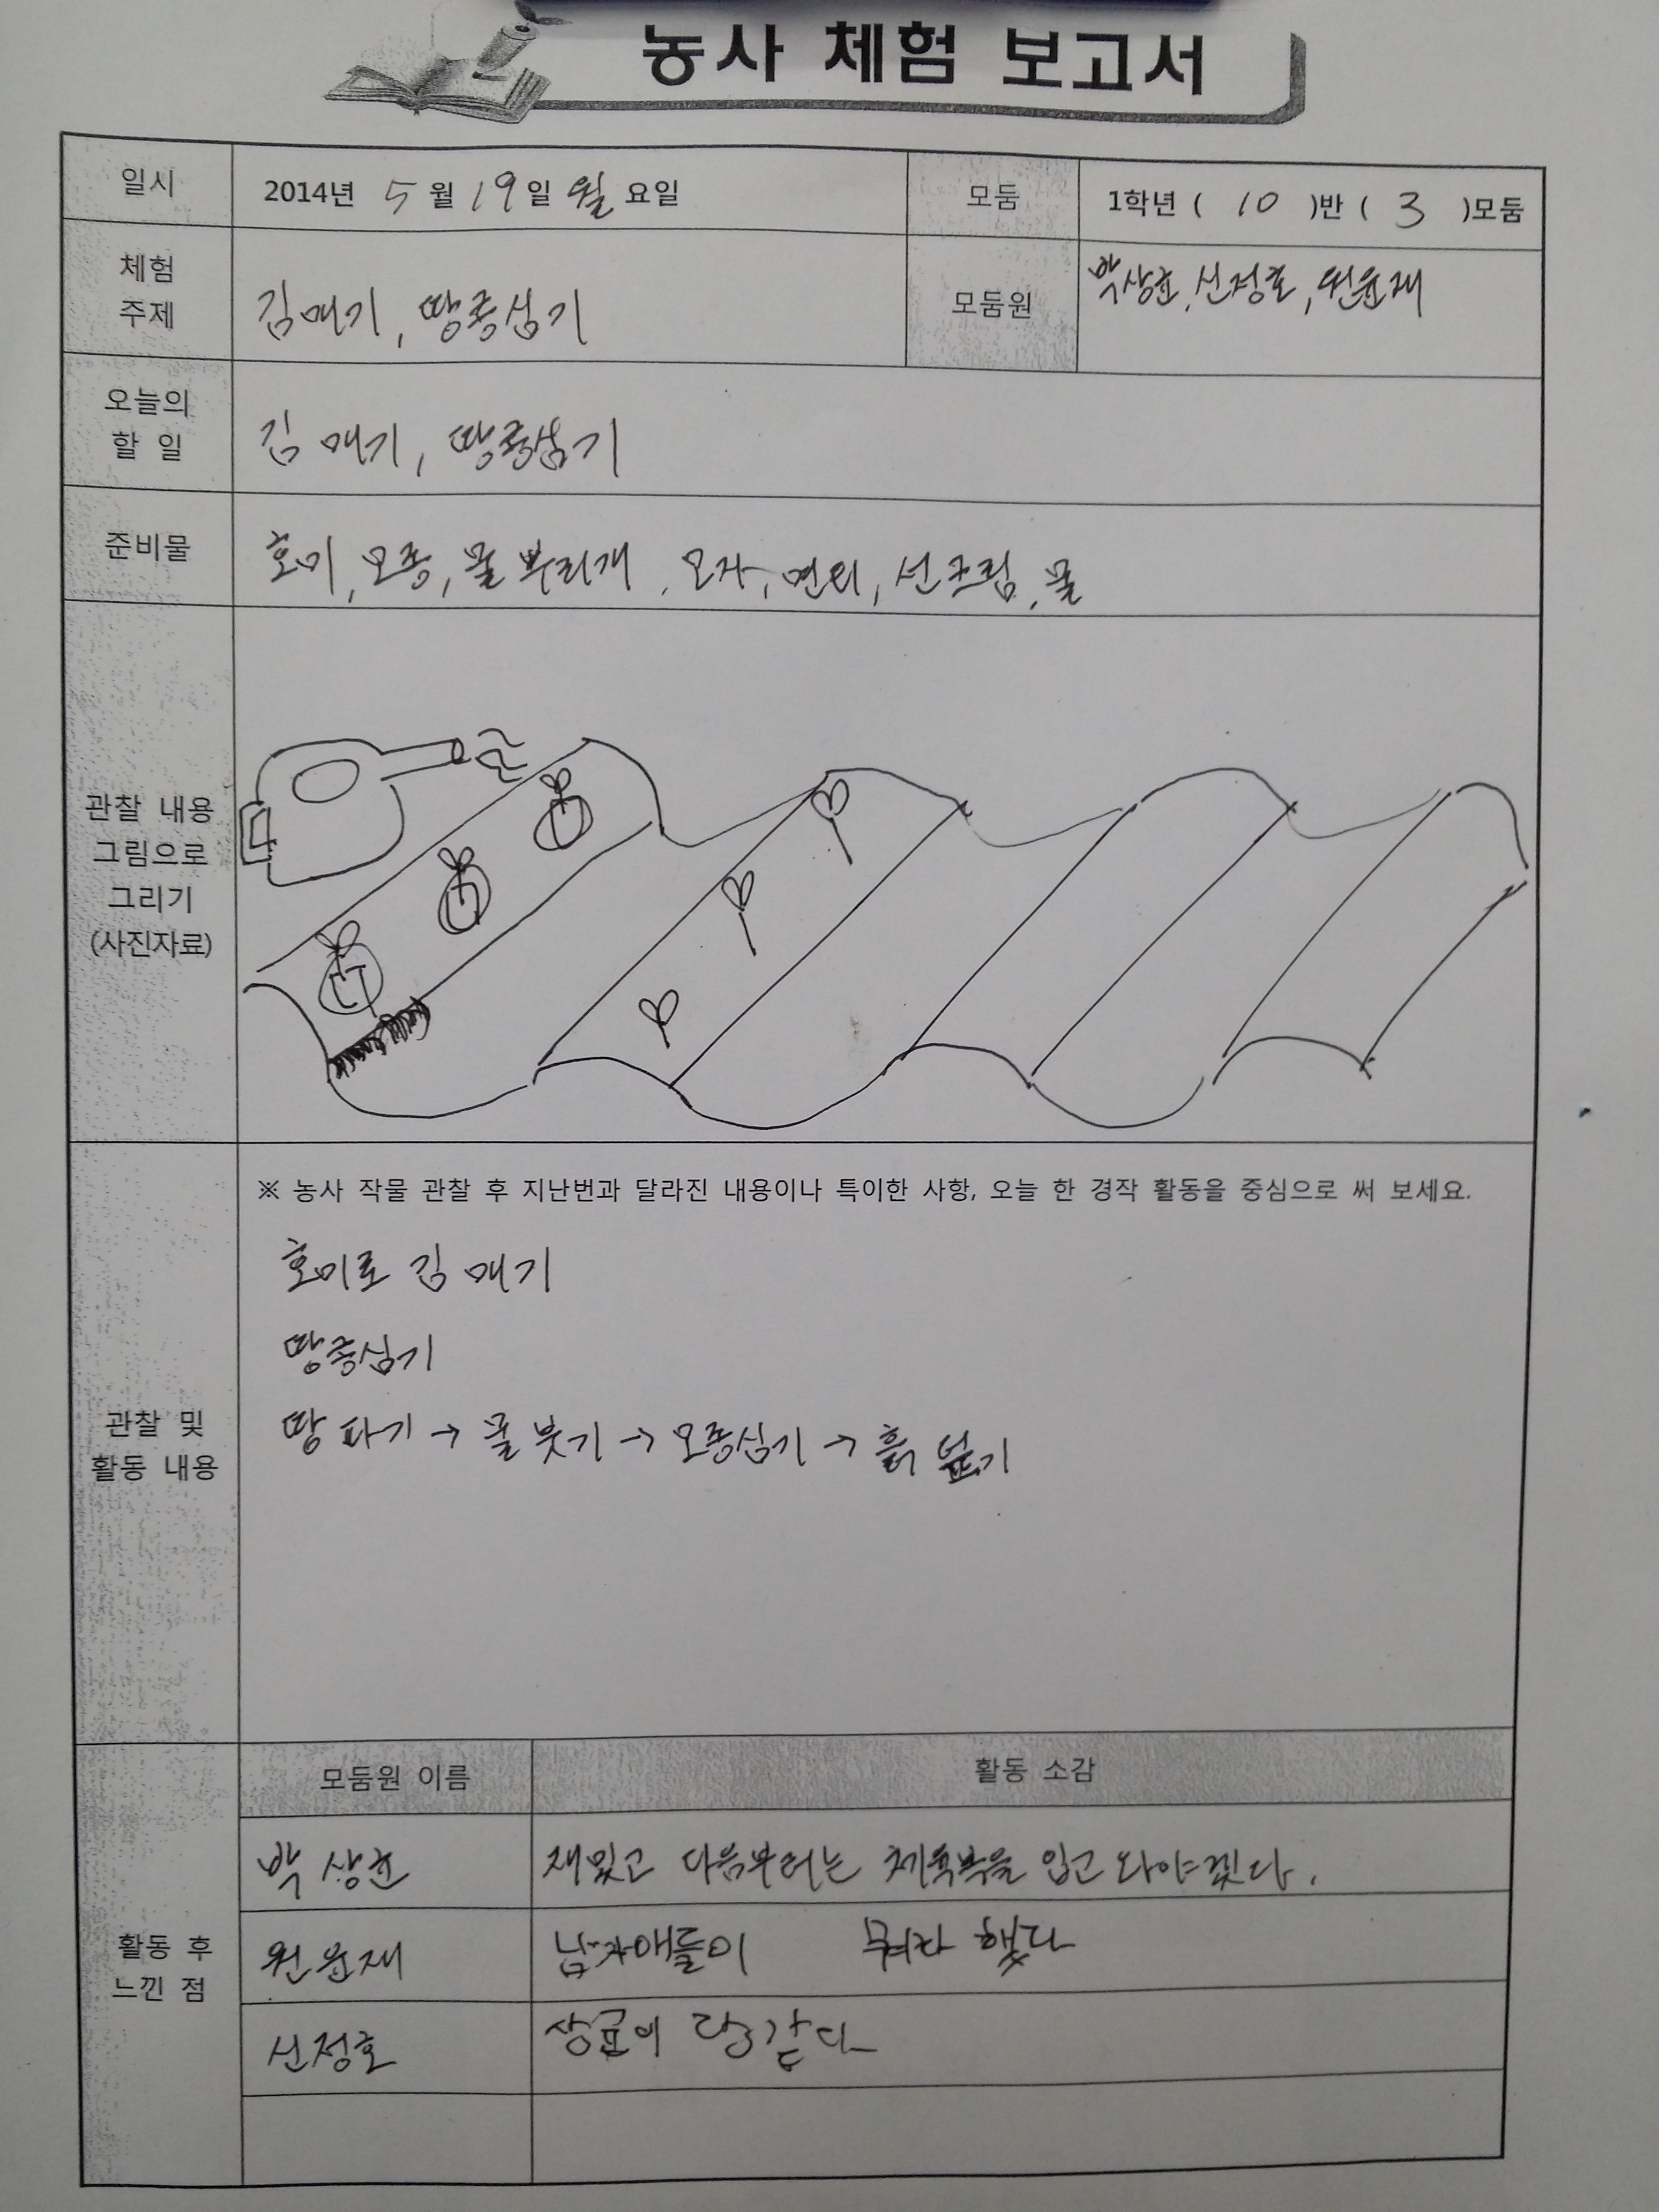 농사 체험 보고서
일시 2014년 5월 19일 월요일 모둠 1학년 ( 10 )반 ( 3 )모둠
체험
주제
김매기, 땅콩심기
모둠원
박상윤, 신정호, 원윤재
오늘의
할 일
김 매기, 땅콩심기
준비물
호미, 모종, 물뿌리개, 모자, 면티, 선크림, 물
관찰 내용
그림으로
그리기
(사진자료)
관찰 및
활동 내용
※ 농사 작물 관찰 후 지난번과 달라진 내용이나 특이한 사항, 오늘 한 경작 활동을 중심으로 써 보세요.
호미로 김 매기
땅콩심기
땅 파기 → 물 붓기 → 모종심기 → 흙 덮기
활동 후
느낀 점
모둠원 이름 활동 소감
박상윤 재밌고 다음부터는 체육복을 입고 와야겠다.
원윤재 남자애들이 했다
신정호 같다